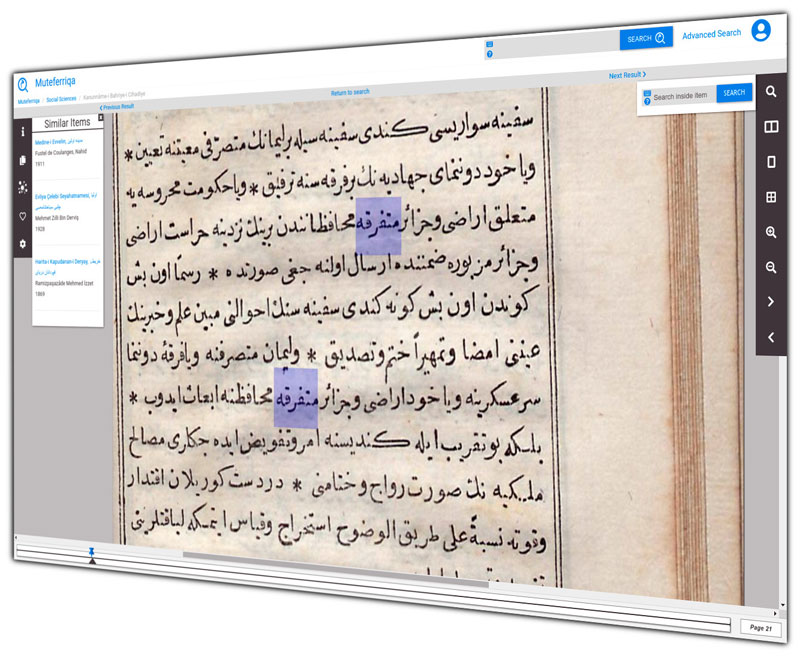 SEARCH
Advanced Search
Muteferriqa
Muteferriqa / Social Sciences / Kanunnâme-i Bahriye-i Cihadiye
Previous Result
Return to search
Next Result
Search inside item
SEARCH
Similar Items
Medine-i Evvelin;
Fustel de Coulanges, Nahid
1911
Evliya Çelebi Seyahatnamesi;
Mehmet Zilli Bin Derviş
1928
Harita-i Kapudanan-ı Deryay;
Ramizpaşazâde Mehmed İzzet
1869
سفینه سواریسی کندی سفینه سیله برلیمانك متصرفی معیتنه تعیین *
ویا خود دوننمای جهادیه نك برفرقه سنه ترفیق * ویا حکومت محروسه یه
متعلق اراضی وجزائر متفرقه محافظاندن برینك نزدینه حراست اراضی
وجزائر مزبوره ضمننده ارسال اولنه جغی صورتده * رسما اون بش
کوندن اون بش کونه کندی سفینه سنك احوالنی مبین علم وخبرینك
عیننی امضا وتمهیراً ختم وتصدیق * ولیمان متصرفنه ویا فرقۀ دوننما
سرعسکرینه ویا خود اراضی وجزائر متفرقه محافظنه ابعاث ایدوب *
بلسکه بو تقریب ایله کندیسنه امر وتفویض ایده جکلری مصالح
ملیکیه نك صورت رواج وختامنی * دردست کوریلان اقتدار
وقوته نسبةً علی طریق الوضوح استخراج وقیاس ایتمسکه لیاقتلرینی
Page 21